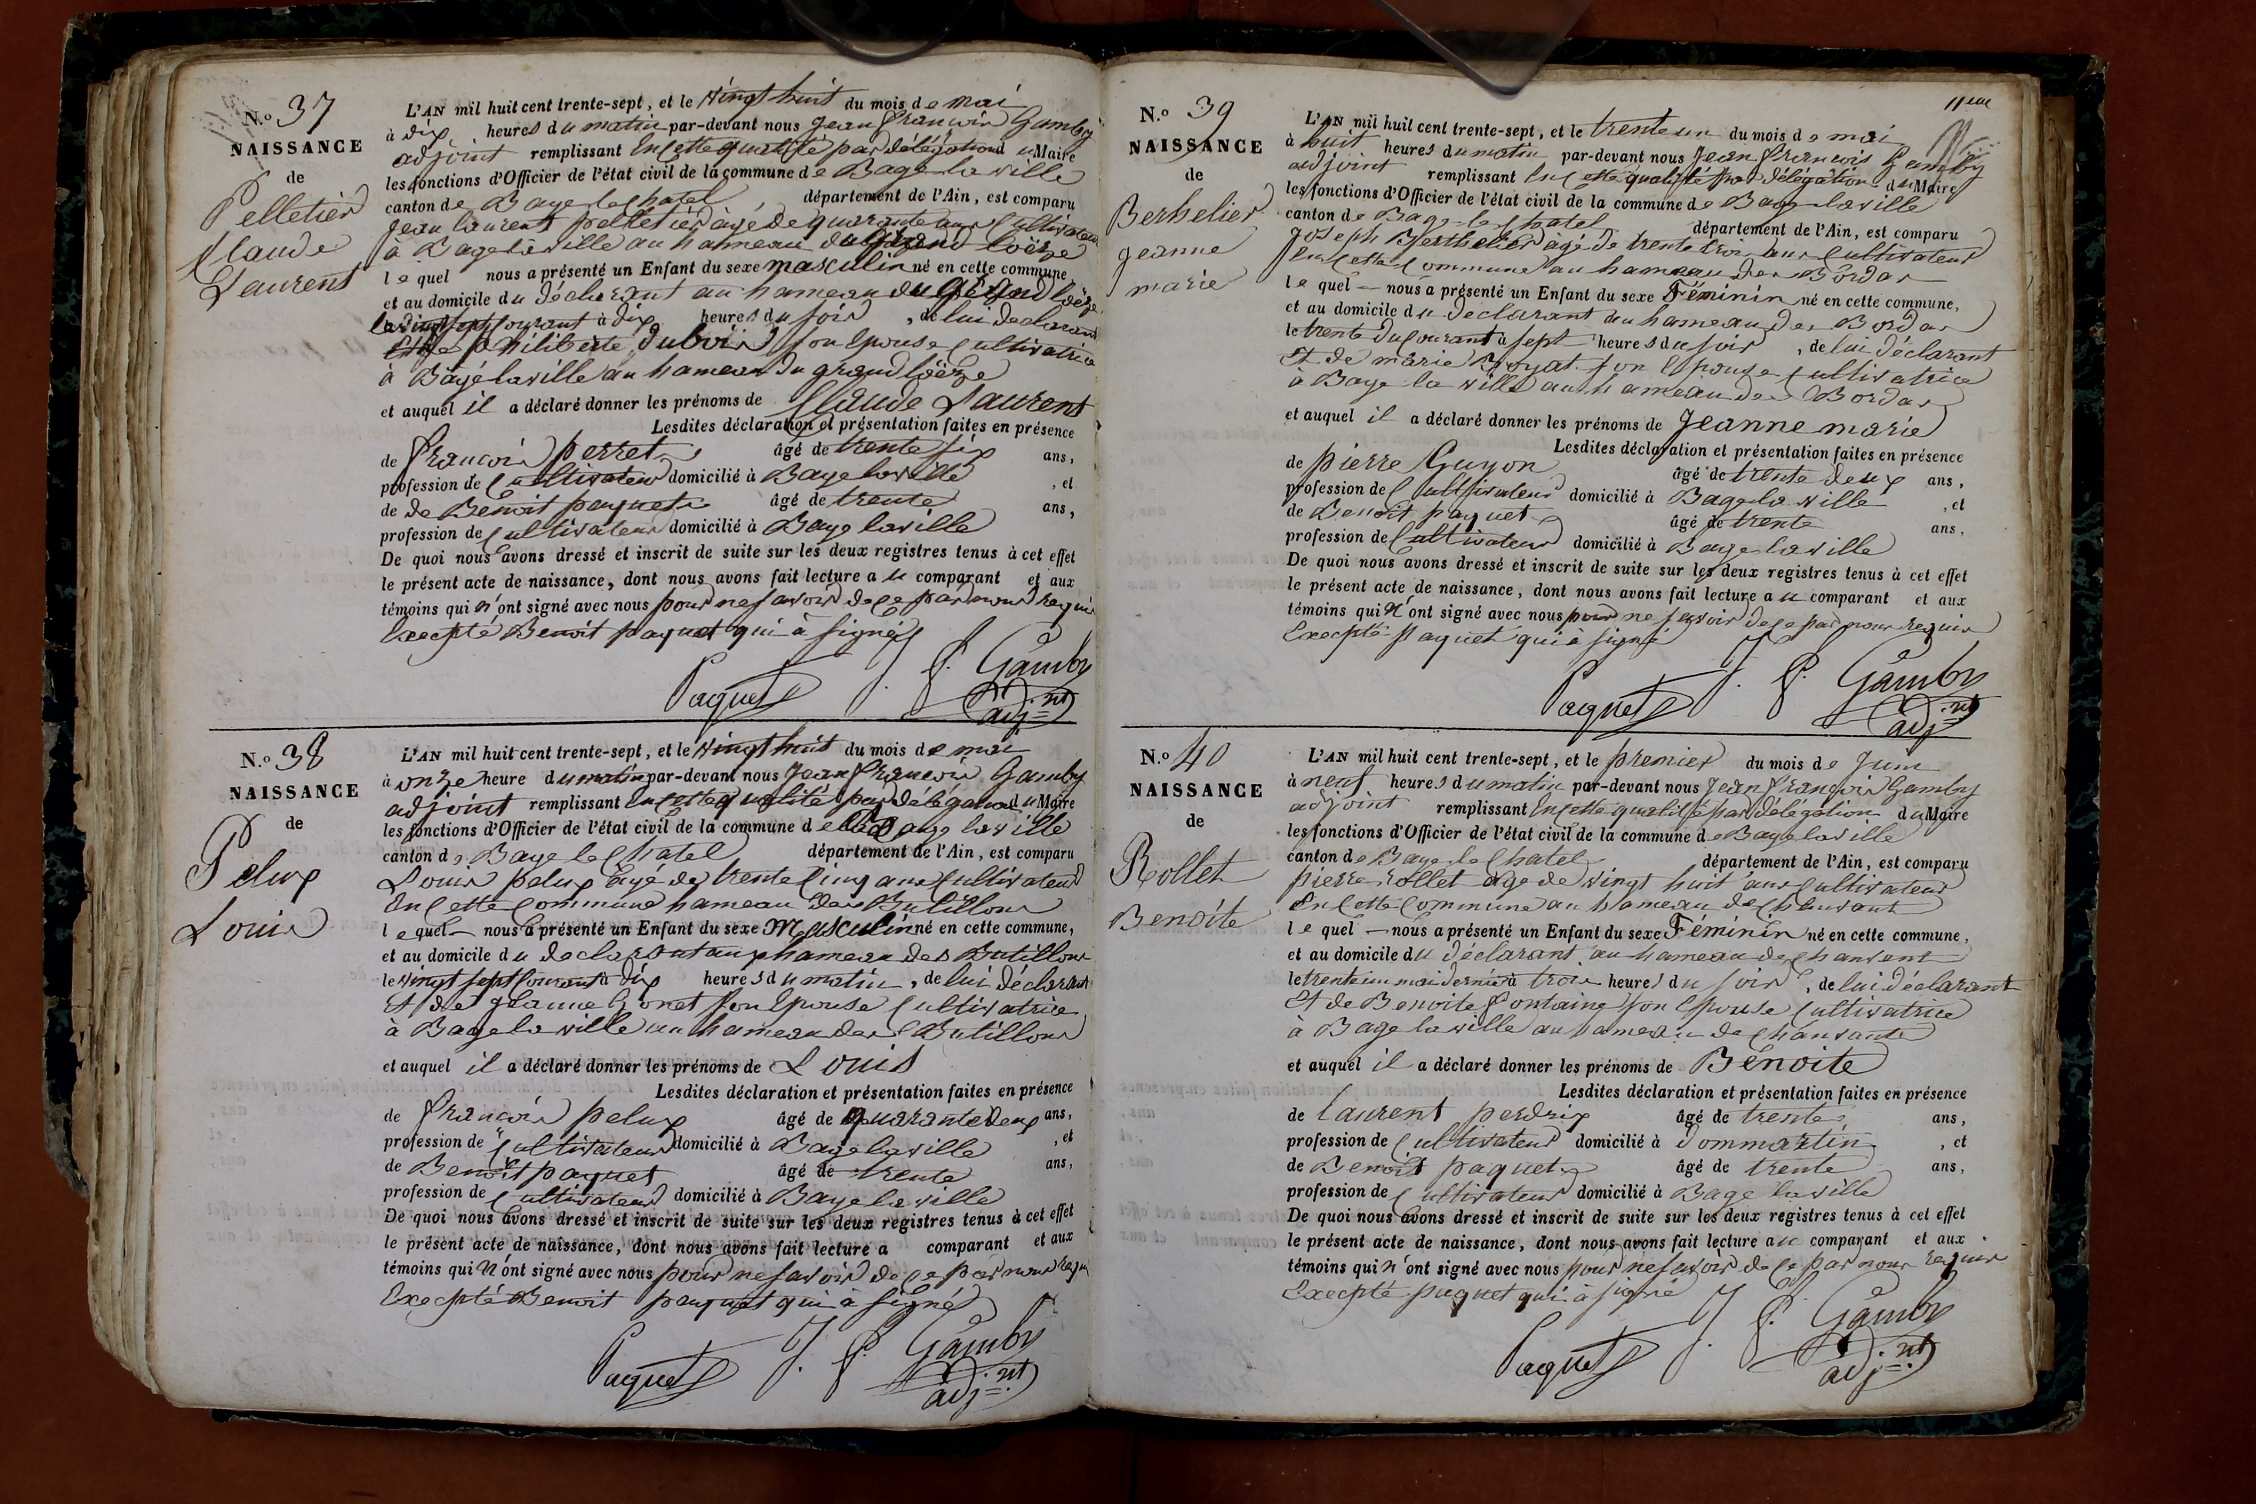 N.o 37
NAISSANCE
de
Pelletier
Claude
Laurent
L'AN mil huit cent trente-sept, et le vingt huit du mois de mai
à dix heures du matin par-devant nous jean françois Gamby
adjoint remplissant en cette qualité par délégation du Maire
les fonctions d'Officier de l'état civil de la commune de Bagé la ville
canton de Bage le Chatel département de l'Ain, est comparu
jean laurent pelletier âgé de quarante ans Cultivateur
à Bage la ville au hameau du grand loëze
le quel nous a présenté un Enfant du sexe masculin né en cette commune
et au domicile du déclarant au hameau du grand loëze
le vingt sept courant à dix heures du soir, de lui declarant
Et de philiberte dubois son Epouse cultivatrice
à Bâgé la ville au hameau du grand loëze
et auquel il a déclaré donner les prénoms de Claude Laurent
Lesdites déclaration et présentation faites en présence
de françois perret âgé de trente six ans,
profession de Cultivateur domicilié à Bage la ville, et
de de Benoit paquet âgé de trente ans,
profession de Cultivateur domicilié à Bage la ville
De quoi nous avons dressé et inscrit de suite sur les deux registres tenus à cet effet
le présent acte de naissance, dont nous avons fait lecture au comparant et aux
témoins qui n'ont signé avec nous pour ne savoir de ce par nous requis
Excepté Benoit paquet qui à signé
Paquet J. f. Gamby
adj.nt
N.o 38
NAISSANCE
de
Pelux
Louis
L'AN mil huit cent trente-sept, et le vingt huit du mois de mai
à onze heure du matin par-devant nous Jean françois Gamby
adjoint remplissant en cette qualité par délégation du Maire
les fonctions d'Officier de l'état civil de la commune de Bage la ville
canton de Bage le Chatel département de l'Ain, est comparu
Louis pelux âgé de trente Cinq ans Cultivateur
En Cette Commune hameau des Butillons
le quel nous a présenté un Enfant du sexe Masculin né en cette commune,
et au domicile du declarant au hameau des Butillons
le vingt sept Courant à dix heures du matin, de lui déclarant
Et de jeanne son Epouse Cultivatrice
à Bage la ville au hameau des Butillons
et auquel il a déclaré donner les prénoms de Louis
Lesdites déclaration et présentation faites en présence
de françois pelux âgé de quarante deux ans,
profession de Cultivateur domicilié à Bage la ville, et
de Benoit paquet âgé de trente ans,
profession de Cultivateur domicilié à Bage la ville
De quoi nous avons dressé et inscrit de suite sur les deux registres tenus à cet effet
le présent acte de naissance, dont nous avons fait lecture a comparant et aux
témoins qui n'ont signé avec nous pour ne savoir de ce par nous requis
Excepté Benoit paquet qui à signé
Paquet J. f. Gamby
adj.nt
11eme
N.o 39
NAISSANCE
de
Berhelier
jeanne
marie
L'AN mil huit cent trente-sept, et le trente un du mois de mai
à huit heures du matin par-devant nous Jean françois Gamby
adjoint remplissant en cette qualité par délégation du Maire
les fonctions d'Officier de l'état civil de la commune de Bage la ville
canton de Bage le Chatel département de l'Ain, est comparu
joseph Berthelier âgé de trente trois ans Cultivateur
En Cette Commune au hameau des Bordes
le quel nous a présenté un Enfant du sexe Féminin né en cette commune,
et au domicile du declarant au hameau des Bordes
le trente du Courant à sept heures du soir, de lui déclarant
Et de marie Boyat son Epouse Cultivatrice
à Bage la ville au hameau des Bordes
et auquel il a déclaré donner les prénoms de Jeanne marie
Lesdites déclaration et présentation faites en présence
de pierre Guyon âgé de trente deux ans,
profession de Cultivateur domicilié à Bage la ville, et
de Benoit paquet âgé de trente ans,
profession de Cultivateur domicilié à Bage la ville
De quoi nous avons dressé et inscrit de suite sur les deux registres tenus à cet effet
le présent acte de naissance, dont nous avons fait lecture au comparant et aux
témoins qui n'ont signé avec nous pour ne savoir de ce par nous requis
Excepté paquet qui à signé
Paquet J. f. Gamby
adj.nt
N.o 40
NAISSANCE
de
Rollet
Benoite
L'AN mil huit cent trente-sept, et le premier du mois de Juin
à neuf heures du matin par-devant nous Jean françois Gamby
adjoint remplissant en cette qualité par délégation du Maire
les fonctions d'Officier de l'état civil de la commune de Bage la ville
canton de Bage le Chatel département de l'Ain, est comparu
pierre rollet âge de vingt huit ans Cultivateur
En Cette Commune au hameau de Chansant
le quel nous a présenté un Enfant du sexe Féminin né en cette commune,
et au domicile du déclarant au hameau de Chansant
le trente un mai dernier à trois heures du soir, de lui déclarant
Et de Benoite Fontaine son Epouse Cultivatrice
à Bage la ville au hameau de Chansante
et auquel il a déclaré donner les prénoms de Benoite
Lesdites déclaration et présentation faites en présence
de laurent perdrix âgé de trente ans,
profession de Cultivateur domicilié à dommartin, et
de Benoit paquet âgé de trente ans,
profession de Cultivateur domicilié à Bage la ville
De quoi nous avons dressé et inscrit de suite sur les deux registres tenus à cet effet
le présent acte de naissance, dont nous avons fait lecture au comparant et aux
témoins qui n'ont signé avec nous pour ne savoir de ce par nous requis
Excepté paquet qui à signé
Paquet J. f. Gamby
adj.nt